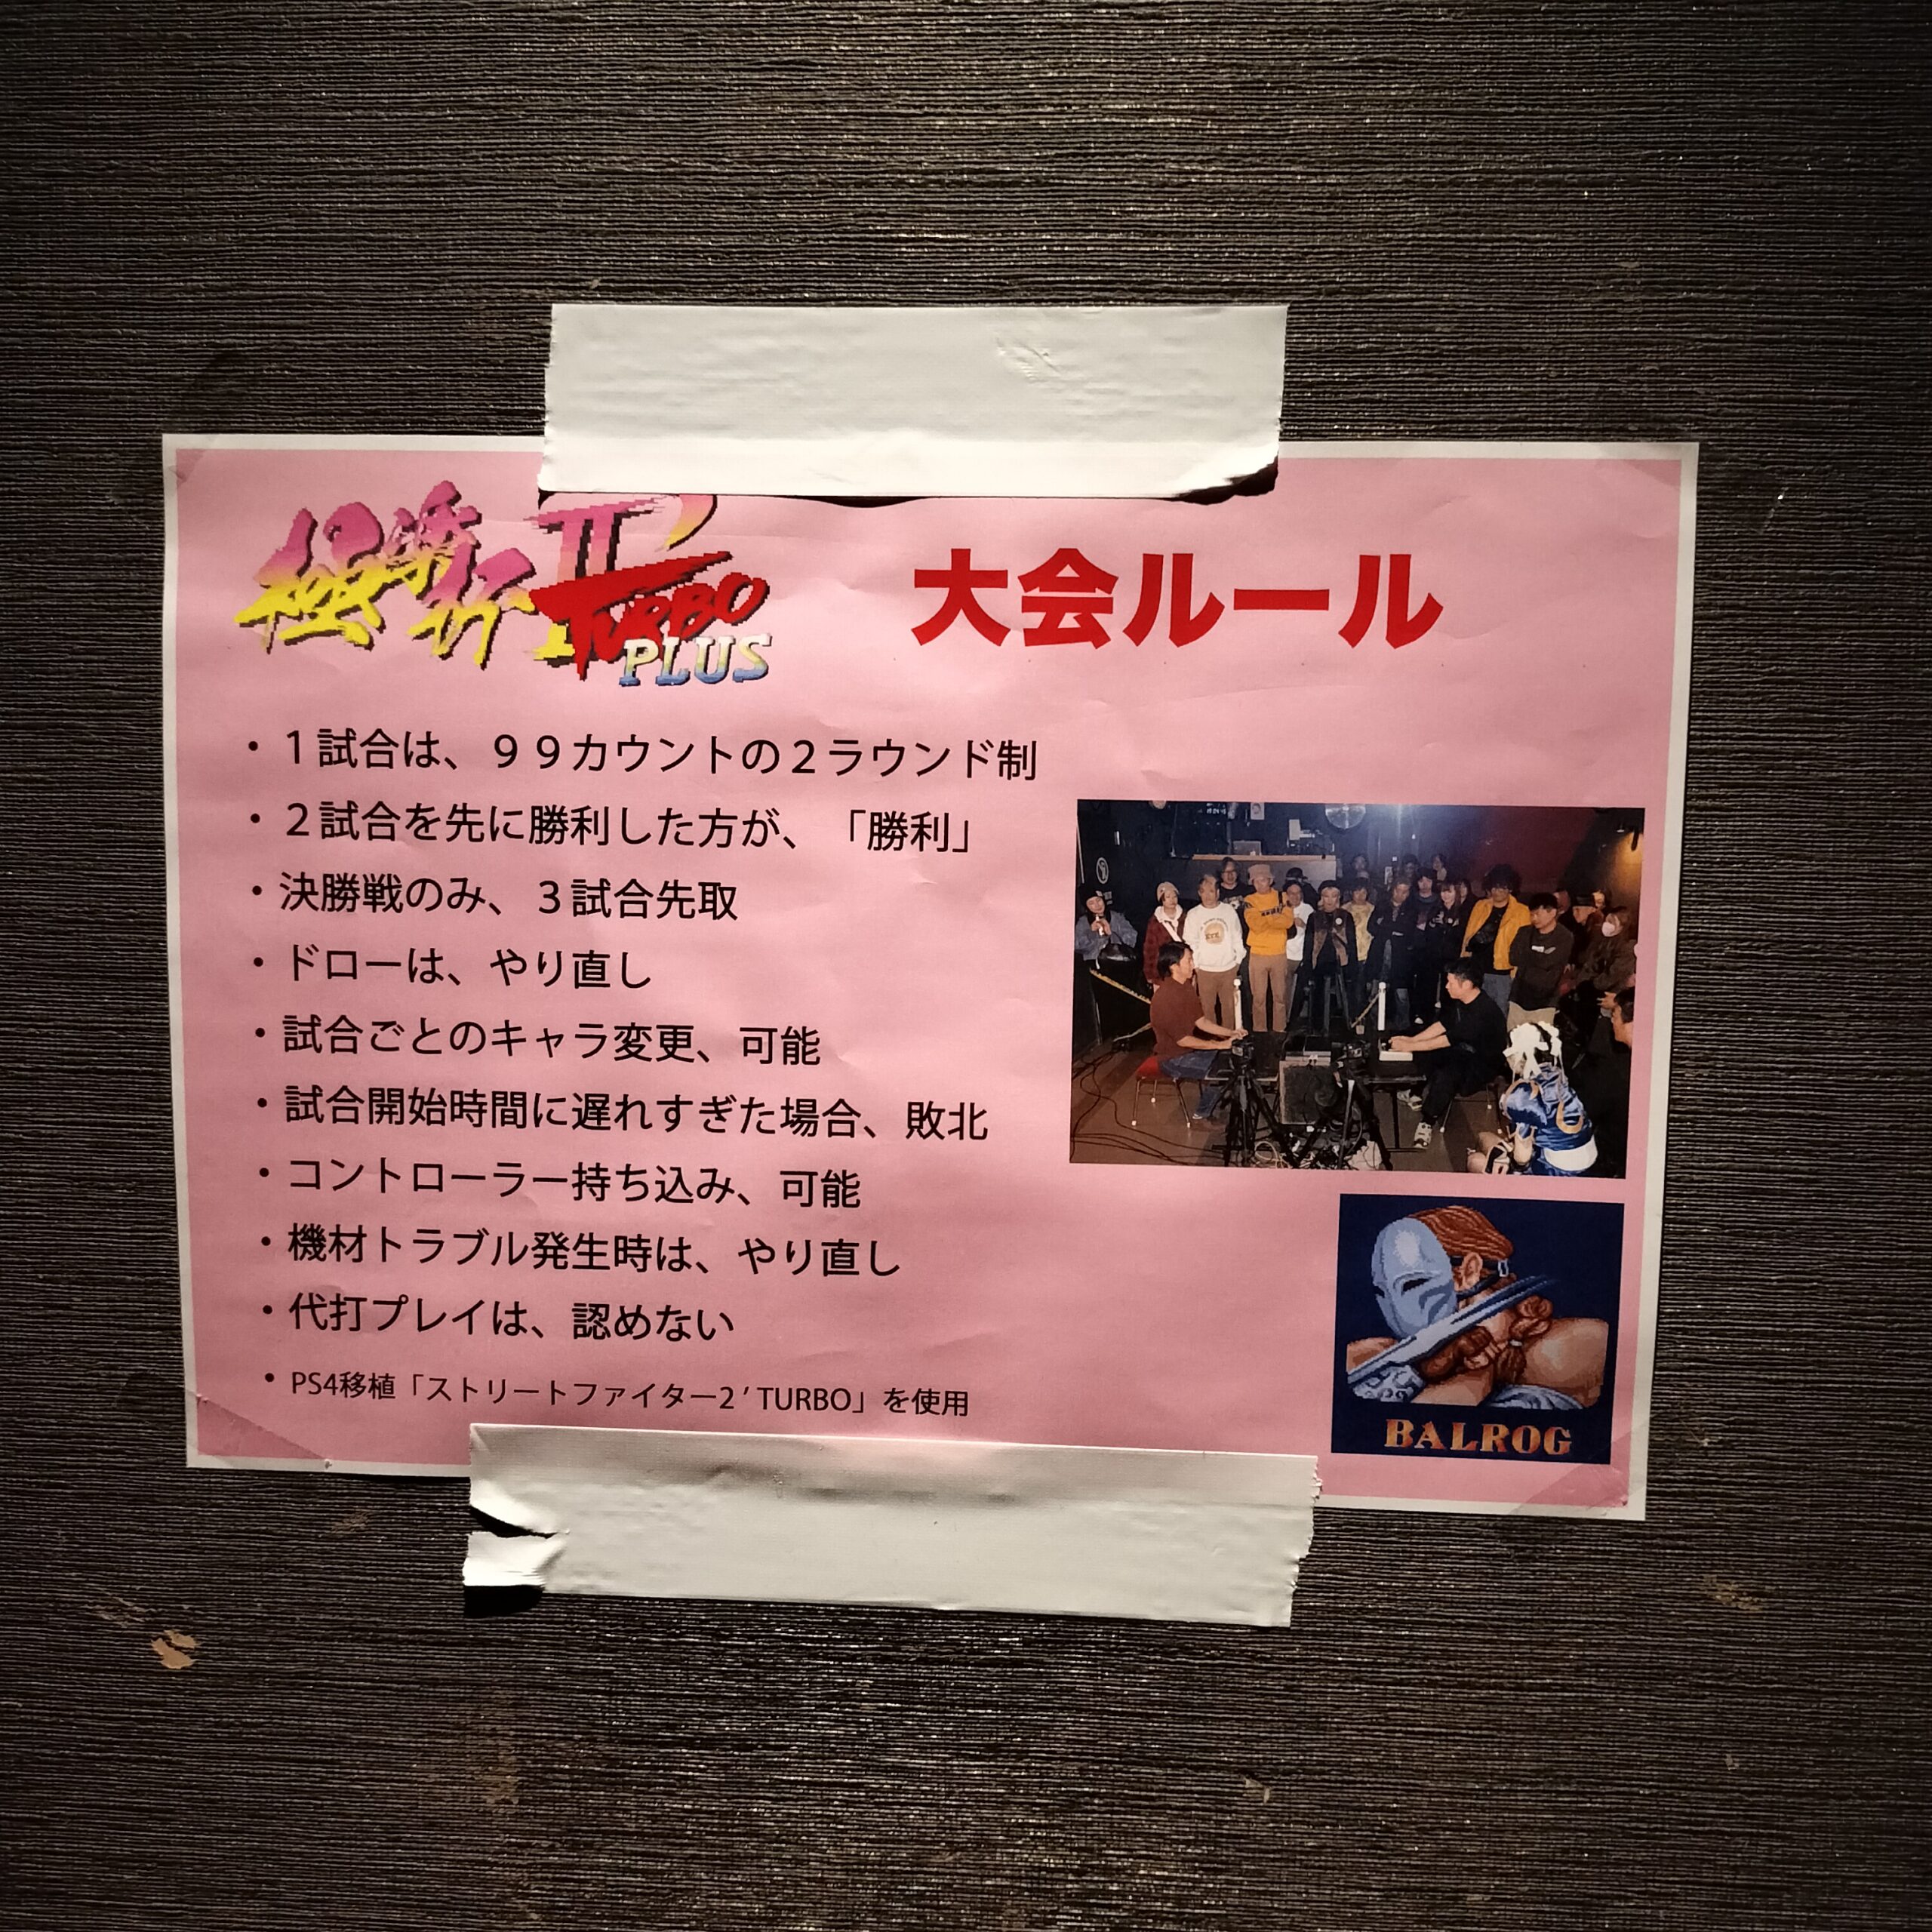 極楽杯 II' TURBO PLUS
大会ルール
・１試合は、９９カウントの２ラウンド制
・２試合を先に勝利した方が、「勝利」
・決勝戦のみ、３試合先取
・ドローは、やり直し
・試合ごとのキャラ変更、可能
・試合開始時間に遅れすぎた場合、敗北
・コントローラー持ち込み、可能
・機材トラブル発生時は、やり直し
・代打プレイは、認めない
・PS4移植「ストリートファイター2 ′ TURBO」を使用
BALROG